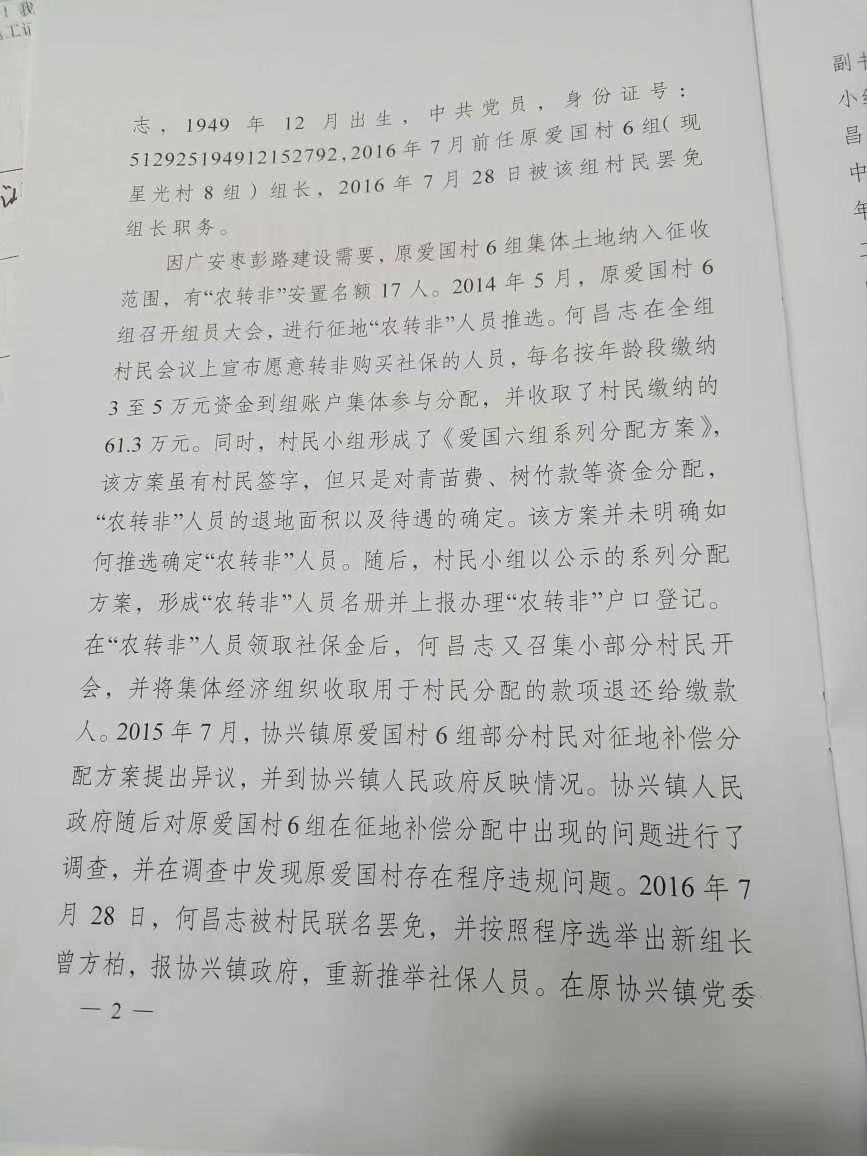 ！我
工讠
志，1949 年 12 月出生，中共党员，身份证号：
512925194912152792,2016 年 7 月前任原爱国村 6 组（现
星光村 8 组）组长，2016 年 7 月 28 日被该组村民罢免
组长职务。
因广安枣彭路建设需要，原爱国村 6 组集体土地纳入征收
范围，有“农转非”安置名额 17 人。2014 年 5 月，原爱国村 6
组召开组员大会，进行征地“农转非”人员推选。何昌志在全组
村民会议上宣布愿意转非购买社保的人员，每名按年龄段缴纳
3 至 5 万元资金到组账户集体参与分配，并收取了村民缴纳的
61.3 万元。同时，村民小组形成了《爱国六组系列分配方案》，
该方案虽有村民签字，但只是对青苗费、树竹款等资金分配，
“农转非”人员的退地面积以及待遇的确定。该方案并未明确如
何推选确定“农转非”人员。随后，村民小组以公示的系列分配
方案，形成“农转非”人员名册并上报办理“农转非”户口登记。
在“农转非”人员领取社保金后，何昌志又召集小部分村民开
会，并将集体经济组织收取用于村民分配的款项退还给缴款
人。2015 年 7 月，协兴镇原爱国村 6 组部分村民对征地补偿分
配方案提出异议，并到协兴镇人民政府反映情况。协兴镇人民
政府随后对原爱国村 6 组在征地补偿分配中出现的问题进行了
调查，并在调查中发现原爱国村存在程序违规问题。2016 年 7
月 28 日，何昌志被村民联名罢免，并按照程序选举出新组长
曾方柏，报协兴镇政府，重新推举社保人员。在原协兴镇党委
— 2 —
副书
小组
昌
中
年